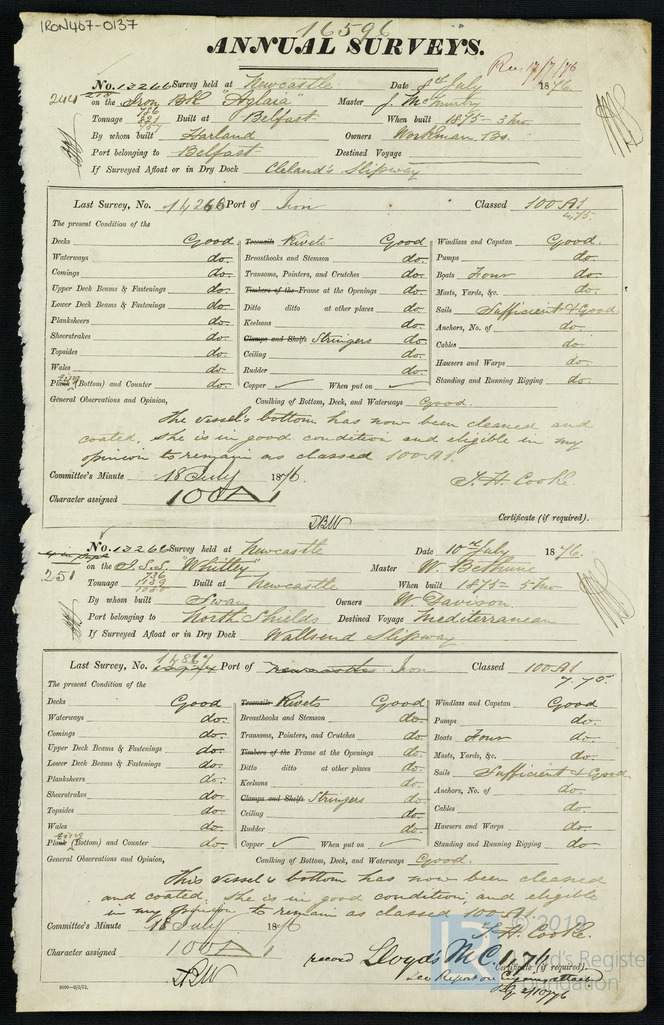 IRON407-0137
16596
ANNUAL SURVEYS.
Rec 17/7/76
No. 13266 Survey held at Newcastle Date 8th July 1876.
244
on the Iron Bk "Aglaia" Master J. McMurtry
Tonnage 821 Built at Belfast When built 1875 - 3 mo
By whom built Harland Owners Workman Bs.
Port belonging to Belfast Destined Voyage
If Surveyed Afloat or in Dry Dock Cleland's Slipway
Last Survey, No. 14266 Port of Iron Classed 100 A1
4,75.
The present Condition of the
Decks Good Treenails Rivets Good Windlass and Capstan Good.
Waterways do. Breasthooks and Stemson do. Pumps do.
Comings do. Transoms, Pointers, and Crutches do. Boats Four do.
Upper Deck Beams & Fastenings do. Timbers of the Frame at the Openings do. Masts, Yards, &c. do.
Lower Deck Beams & Fastenings do. Ditto ditto at other places do. Sails Sufficient & Good
Planksheers do. Keelsons do. Anchors, No. of do.
Sheerstrakes do. Clamps and Shelfs Stringers do. Cables do.
Topsides do. Ceiling do.
Wales do. Rudder do. Hawsers and Warps do.
Plating (Bottom) and Counter do. Copper ✓ When put on ✓ Standing and Running Rigging do.
General Observations and Opinion, Caulking of Bottom, Deck, and Waterways Good.
The vessel's bottom has now been cleaned and
coated, she is in good condition and eligible in my
opinion to remain as classed 100 A1.
Committee's Minute 18 July 1876. T. H. Cooke.
Character assigned 100 A 1
Certificate (if required).
No. 13266 Survey held at Newcastle Date 10th July 1876.
251
on the S.S.S. "Whitley" Master W. Bethune
Tonnage 736 Built at Newcastle When built 1875 - 5 mo
By whom built Swan Owners W. Davison
Port belonging to North Shields Destined Voyage Mediterranean
If Surveyed Afloat or in Dry Dock Wallsend Slipway
Last Survey, No. 14867 Port of Newcastle Iron Classed 100 A1
7,75.
The present Condition of the
Decks Good Treenails Rivets Good Windlass and Capstan Good
Waterways do. Breasthooks and Stemson do. Pumps do.
Comings do. Transoms, Pointers, and Crutches do. Boats Four do.
Upper Deck Beams & Fastenings do. Timbers of the Frame at the Openings do. Masts, Yards, &c. do.
Lower Deck Beams & Fastenings do. Ditto ditto at other places do. Sails Sufficient & Good
Planksheers do. Keelsons do. Anchors, No. of do.
Sheerstrakes do. Clamps and Shelfs Stringers do. Cables do.
Topsides do. Ceiling do.
Wales do. Rudder do. Hawsers and Warps do.
Plating (Bottom) and Counter do. Copper ✓ When put on ✓ Standing and Running Rigging do
General Observations and Opinion, Caulking of Bottom, Deck, and Waterways Good.
This vessel's bottom has now been cleaned
and coated. She is in good condition, and eligible
in my opinion to remain as classed 100 A1.
Committee's Minute 18 July 1876 T. H. Cooke.
Character assigned 100 A 1
record Lloyd's M.C. 6,76
Certificate (if required).
See Report on attached
2/10/76
© 2019
Lloyd's Register
Foundation